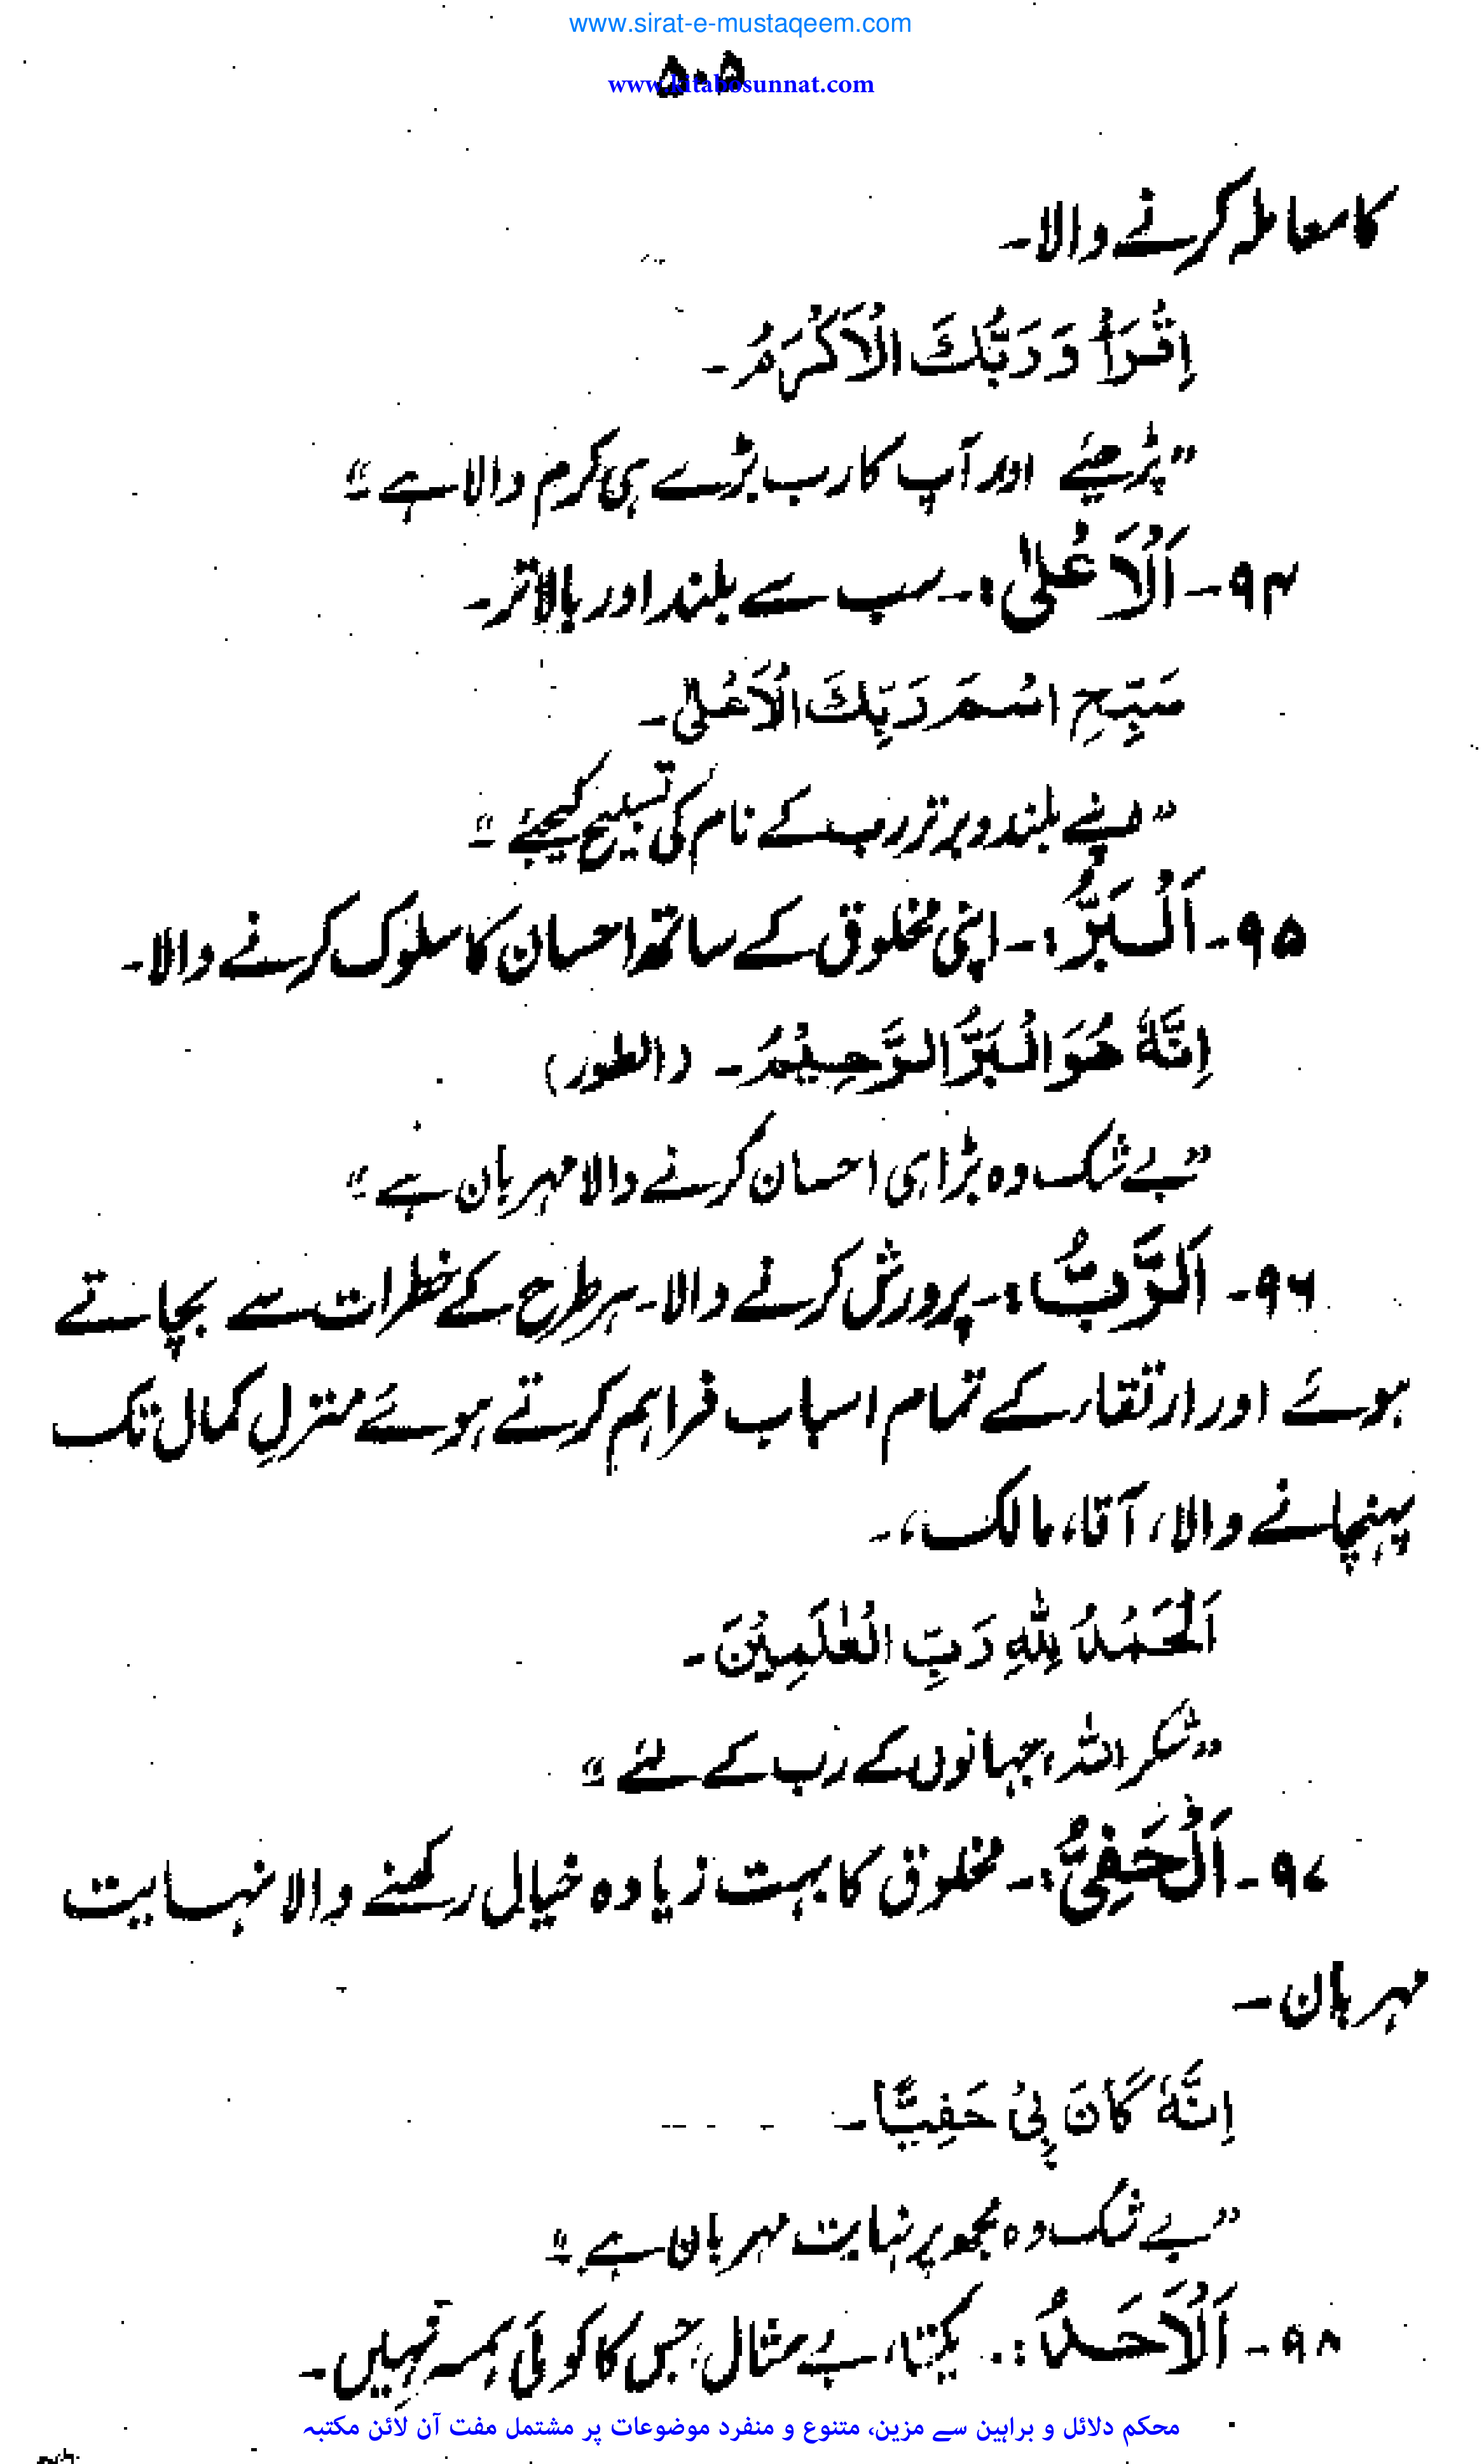 www.sirat-e-mustaqeem.com
۵۰۵
www.kitabosunnat.com
کا معاملہ کرنے والا۔
اِقْرَأْ وَ رَبُّكَ الْاَكْرَمُ۔
”پڑھیے اور آپ کا رب بڑے ہی کرم والا ہے۔“
۹۴۔ اَلْاَعْلیٰ:۔ سب سے بلند اور بالاتر۔
سَبِّحِ اسْمَ رَبِّكَ الْاَعْلٰى۔
”اپنے بلند و برتر رب کے نام کی تسبیح کیجئے۔“
۹۵۔ اَلْبَرُّ:۔ اپنی مخلوق کے ساتھ احسان کا سلوک کرنے والا۔
اِنَّهٗ هُوَ الْبَرُّ الرَّحِيْمُ۔ (الطور)
”بے شک وہ بڑا ہی احسان کرنے والا مہربان ہے“
۹۶۔ اَلرَّبُّ:۔ پرورش کرنے والا۔ ہر طرح کے خطرات سے بچاتے
ہوئے اور ارتقاء کے تمام اسباب فراہم کرتے ہوئے منزلِ کمال تک
پہنچانے والا، آقا، مالک،۔
اَلْحَمْدُ لِلّٰهِ رَبِّ الْعٰلَمِيْنَ۔
”شکر اللہ، جہانوں کے رب کے لئے۔“
۹۷۔ اَلْحَفِیُّ:۔ مخلوق کا بہت زیادہ خیال رکھنے والا نہایت
مہربان۔
اِنَّهٗ كَانَ بِیْ حَفِيًّا۔
”بے شک وہ مجھ پر نہایت مہربان ہے۔“
۹۸۔ اَلْاَحَدُ:۔ یکتا، بے مثال، جس کا کوئی ہمسر نہیں۔
محکم دلائل و براہین سے مزین، متنوع و منفرد موضوعات پر مشتمل مفت آن لائن مکتبہ